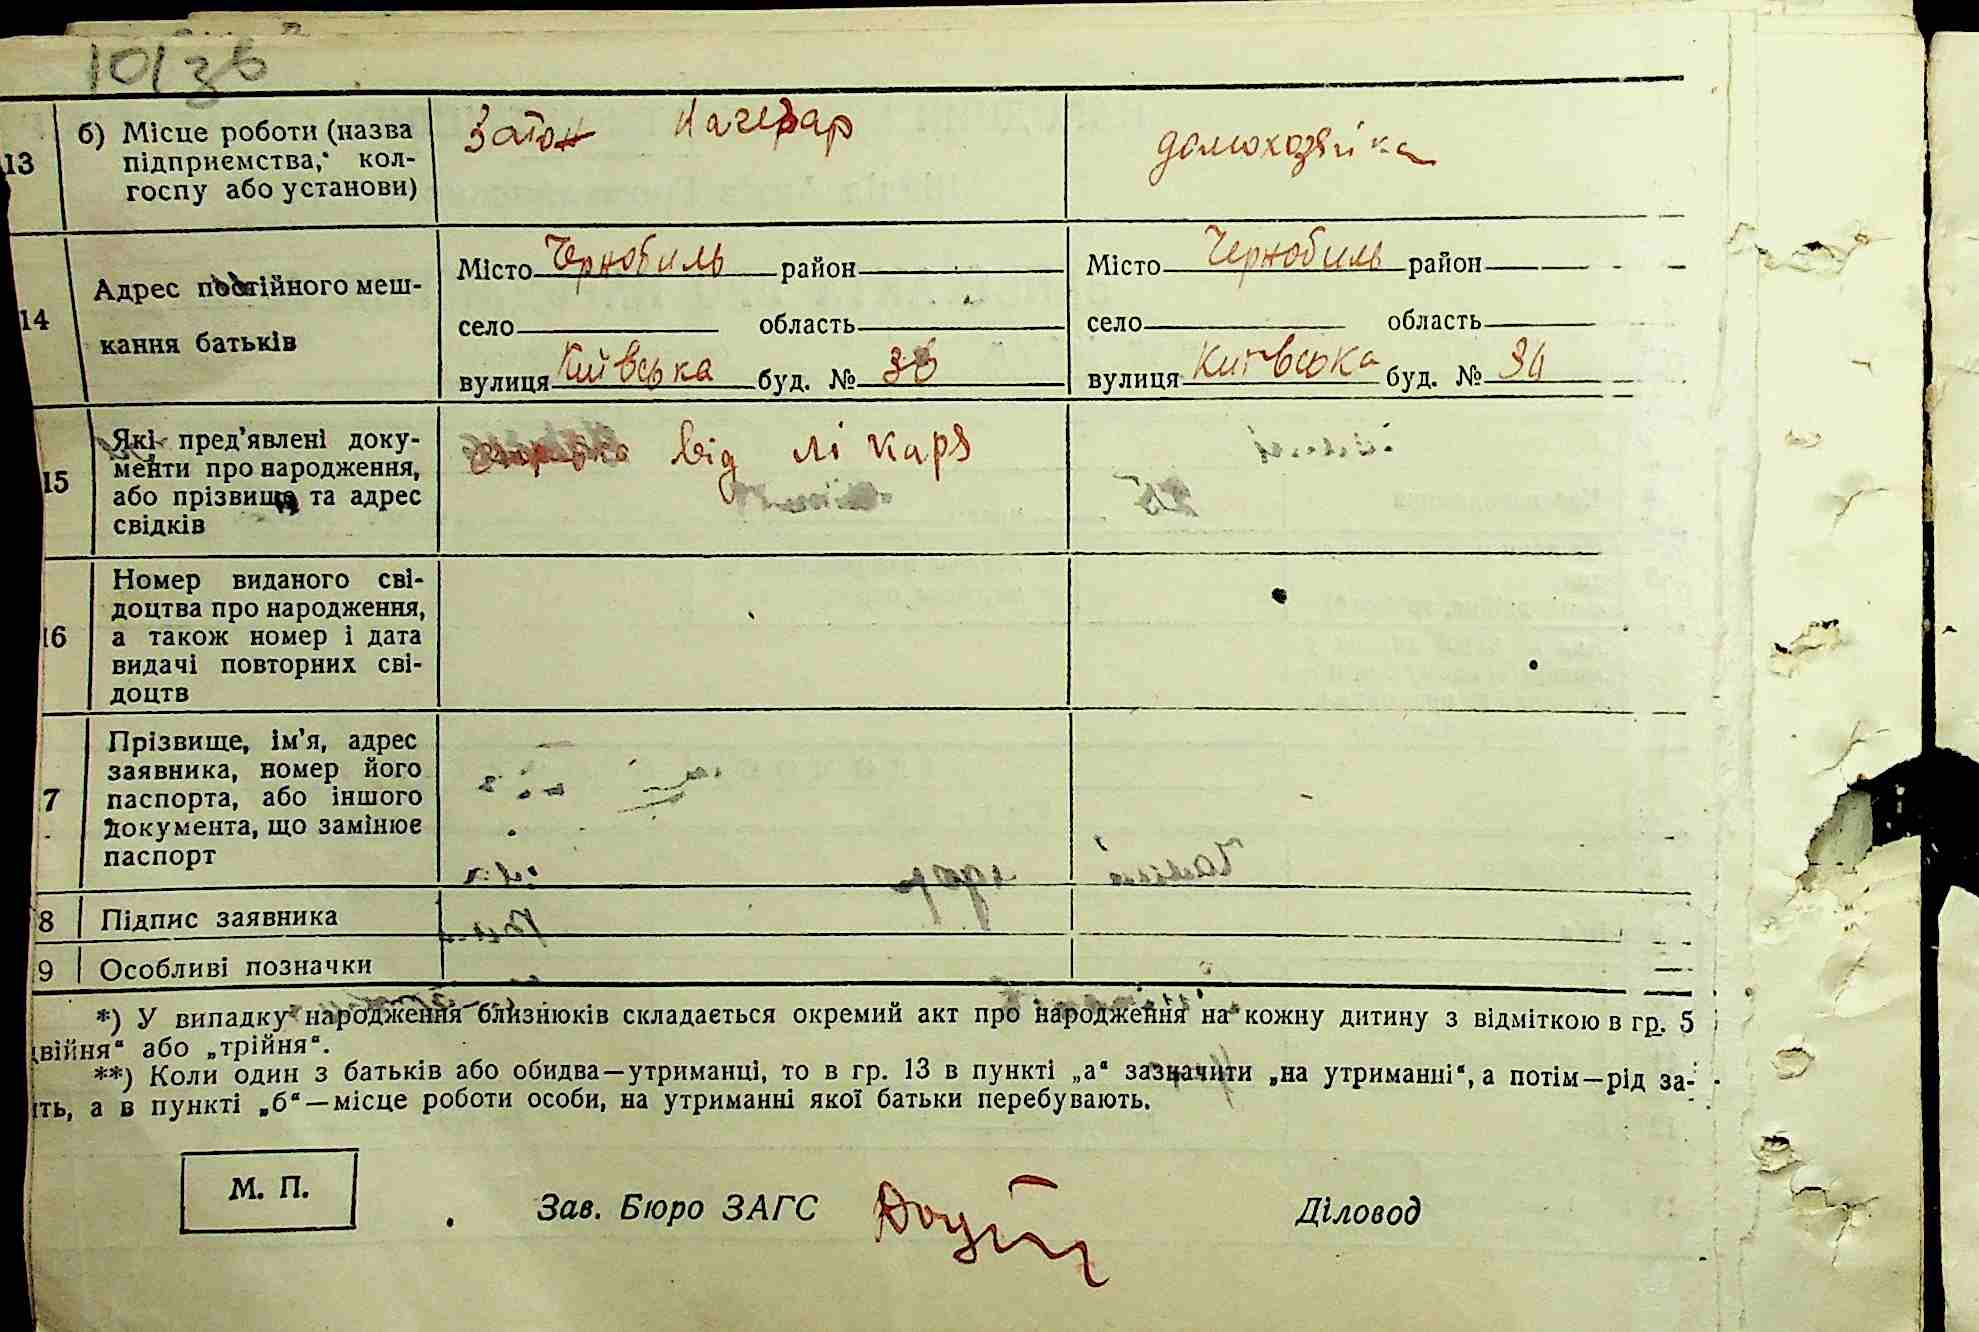 10/зв
13 б) Місце роботи (назва
підприємства, кол-
госпу або установи)
Затон Качегар
домохозяйка
14 Адрес постійного меш-
кання батьків
Місто Чернобиль район
село область
вулиця Київська буд. №
Місто Чернобиль район
село область
вулиця Київська буд. № 34
15 Які пред’явлені доку-
менти про народження,
або прізвище та адрес
свідків
від лікаря
16 Номер виданого сві-
доцтва про народження,
а також номер і дата
видачі повторних сві-
доцтв
7 Прізвище, ім’я, адрес
заявника, номер його
паспорта, або іншого
документа, що замінює
паспорт
8 Підпис заявника
9 Особливі позначки
*) У випадку народження близнюків складається окремий акт про народження на кожну дитину з відміткою в гр. 5
двійня“ або „трійня“.
**) Коли один з батьків або обидва—утриманці, то в гр. 13 в пункті „а“ зазначити „на утриманні“, а потім—рід за-
ть, а в пункті „б“—місце роботи особи, на утриманні якої батьки перебувають.
М. П.
Зав. Бюро ЗАГС
Діловод